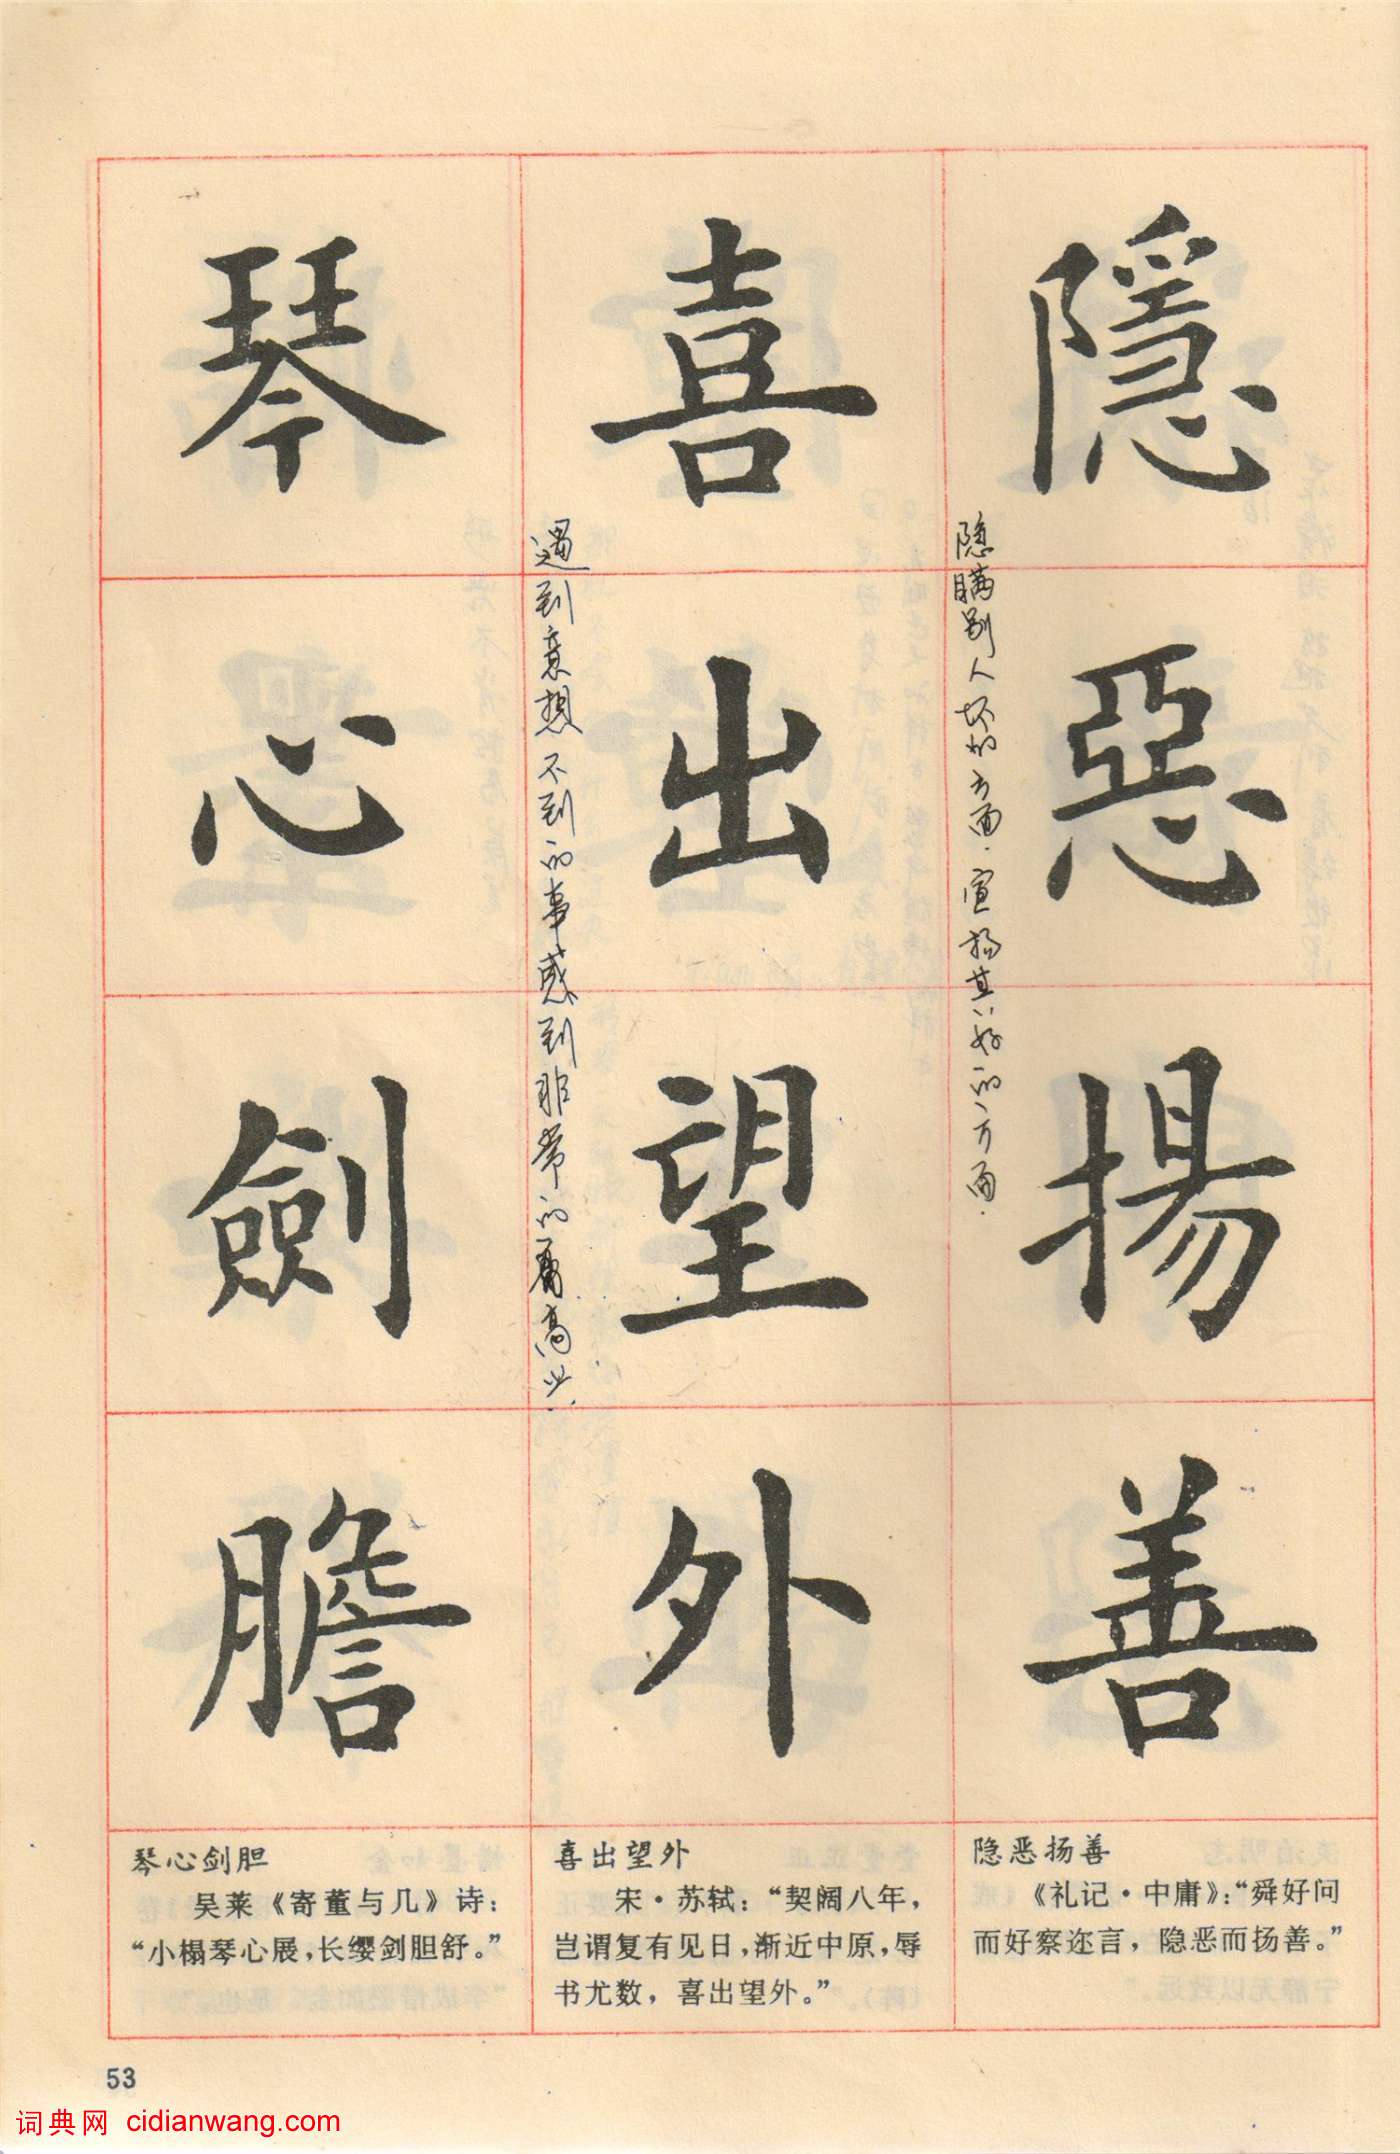 隱惡揚善
隐瞒别人坏的方面.宣扬其好的方面.
喜出望外
遇到意想不到的事感到非常的高兴.
琴心劍膽
隐恶扬善
《礼记·中庸》：“舜好问
而好察迩言，隐恶而扬善。”
喜出望外
宋·苏轼：“契阔八年，
岂谓复有见日，渐近中原，辱
书尤数，喜出望外。”
琴心剑胆
吴莱《寄董与几》诗：
“小榻琴心展，长缨剑胆舒。”
53
词典网 cidianwang.com